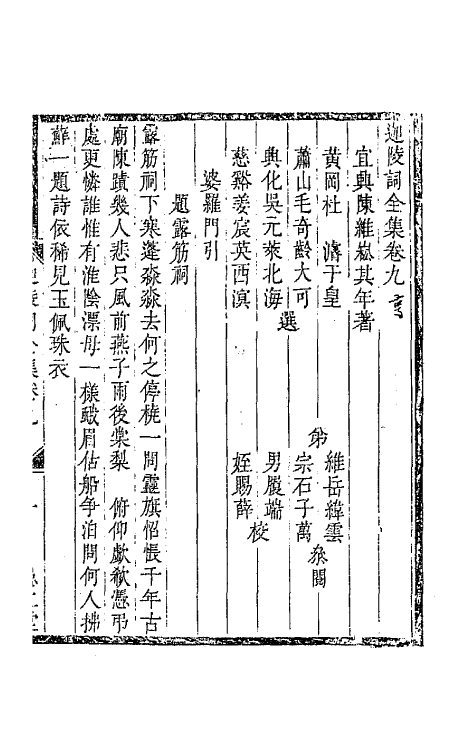 迦陵詞全集卷九 亨
宜興陳維崧其年著
黃岡杜 濬于皇
蕭山毛奇齡大可
選
興化吳元萊北海
慈谿姜宸英西溟
弟
維岳緯雲
宗石子萬
叅閱
男履端
姪賜薛
校
婆羅門引
題露筋祠
露筋祠下寒蓬淼淼去何之停橈一問靈旗怊悵千年古
廟陳蹟幾人悲只風前燕子雨後棠梨 俯仰歔欷憑弔
處更憐誰惟有淮陰漂母一樣蛾眉估船争泊問何人拂
蘚一題詩依稀見玉佩珠衣